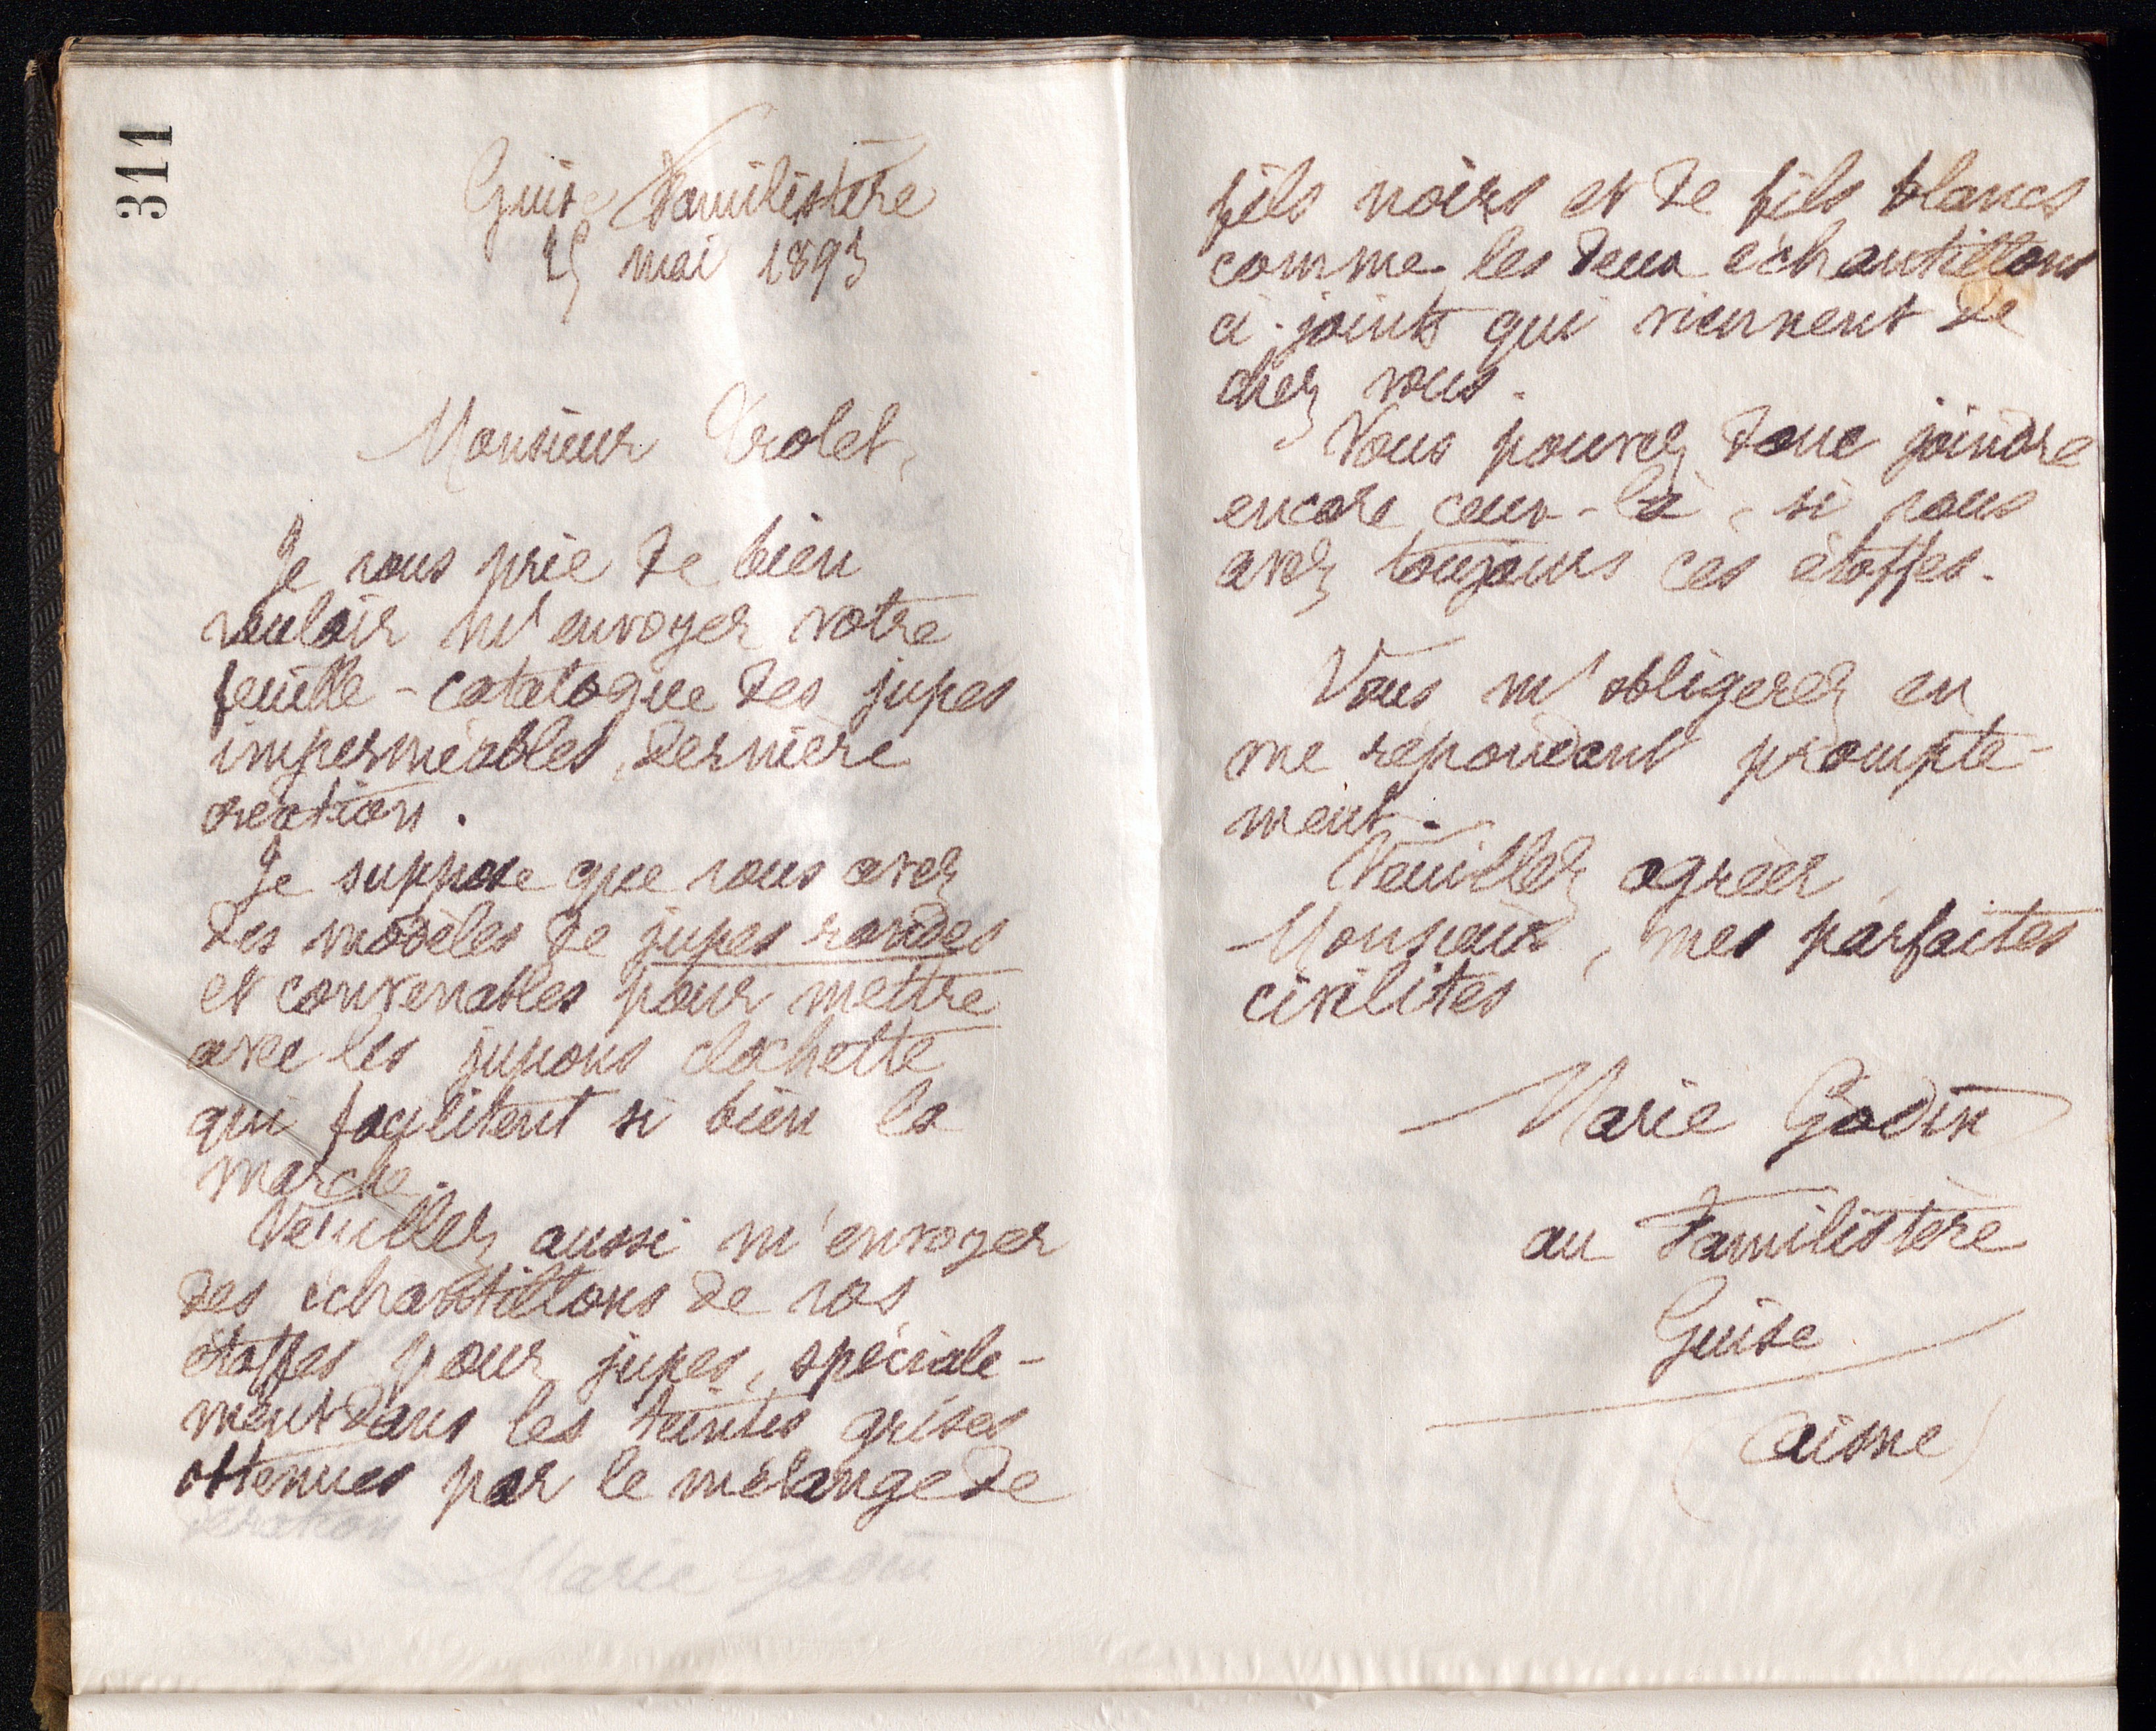 311
Guise Familistère
25 mai 1893
Monsieur Trolet,
Je vous prie de bien
vouloir m'envoyer votre
feuille-catalogue des jupes
imperméables, dernière
création.
Je suppose que vous avez
des modèles de jupes rondes
et convenables pour mettre
avec les jupons clochette
qui facilitent si bien la
marche.
Veuillez aussi m'envoyer
des échantillons de vos
étoffes pour jupes, spéciale-
ment dans les teintes grises
obtenues par le mélange de
Marie Godin
fils noirs et de fils blancs
comme les deux échantillons
ci-joints qui viennent de
chez vous.
Vous pouvez donc joindre
encore ceux-là, si vous
avez toujours ces étoffes.
Vous m'obligerez en
me répondant prompte-
ment.
Veuillez agréer,
Monsieur, mes parfaites
civilités
Marie Godin
au Familistère
Guise
(Aisne)